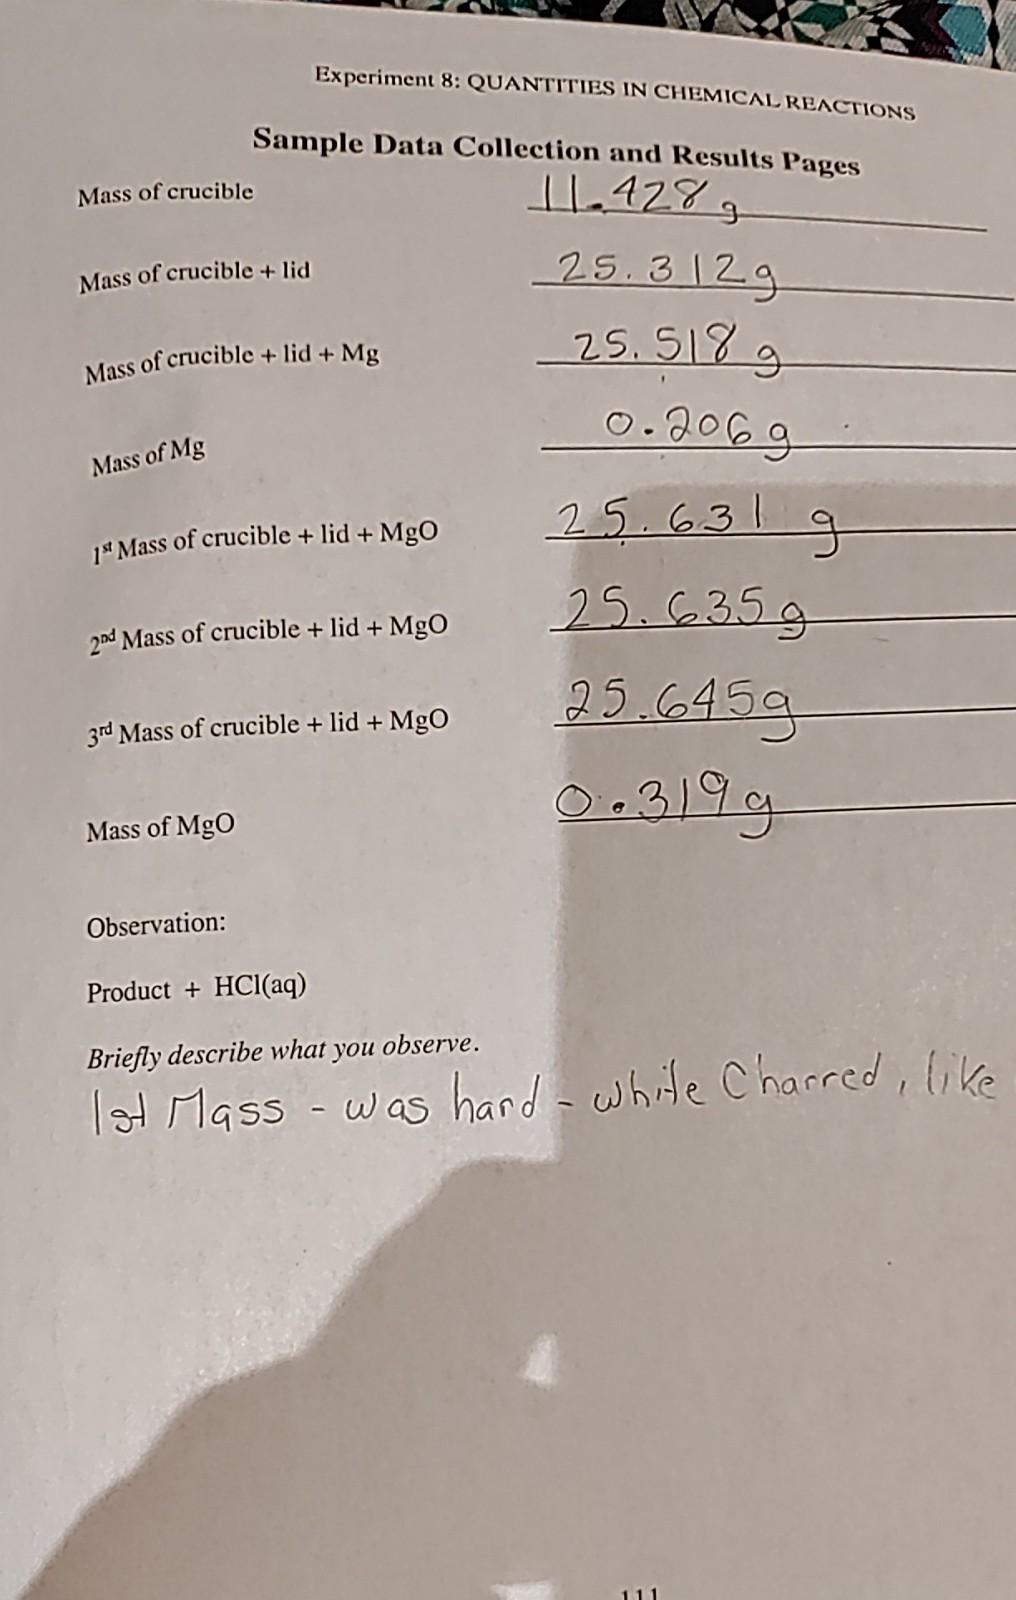 Experiment 8: QUANTITIES IN CHEMICAL REACTIONS
Sample Data Collection and Results Pages
Mass of crucible 11.428 g
Mass of crucible + lid 25.312g
Mass of crucible + lid + Mg 25.518 g
Mass of Mg 0.206 g
1st Mass of crucible + lid + MgO 25.631 g
2nd Mass of crucible + lid + MgO 25.635g
3rd Mass of crucible + lid + MgO 25.645g
Mass of MgO 0.319 g
Observation:
Product + HCl(aq)
Briefly describe what you observe.
1st Mass - was hard - white Charred, like
111